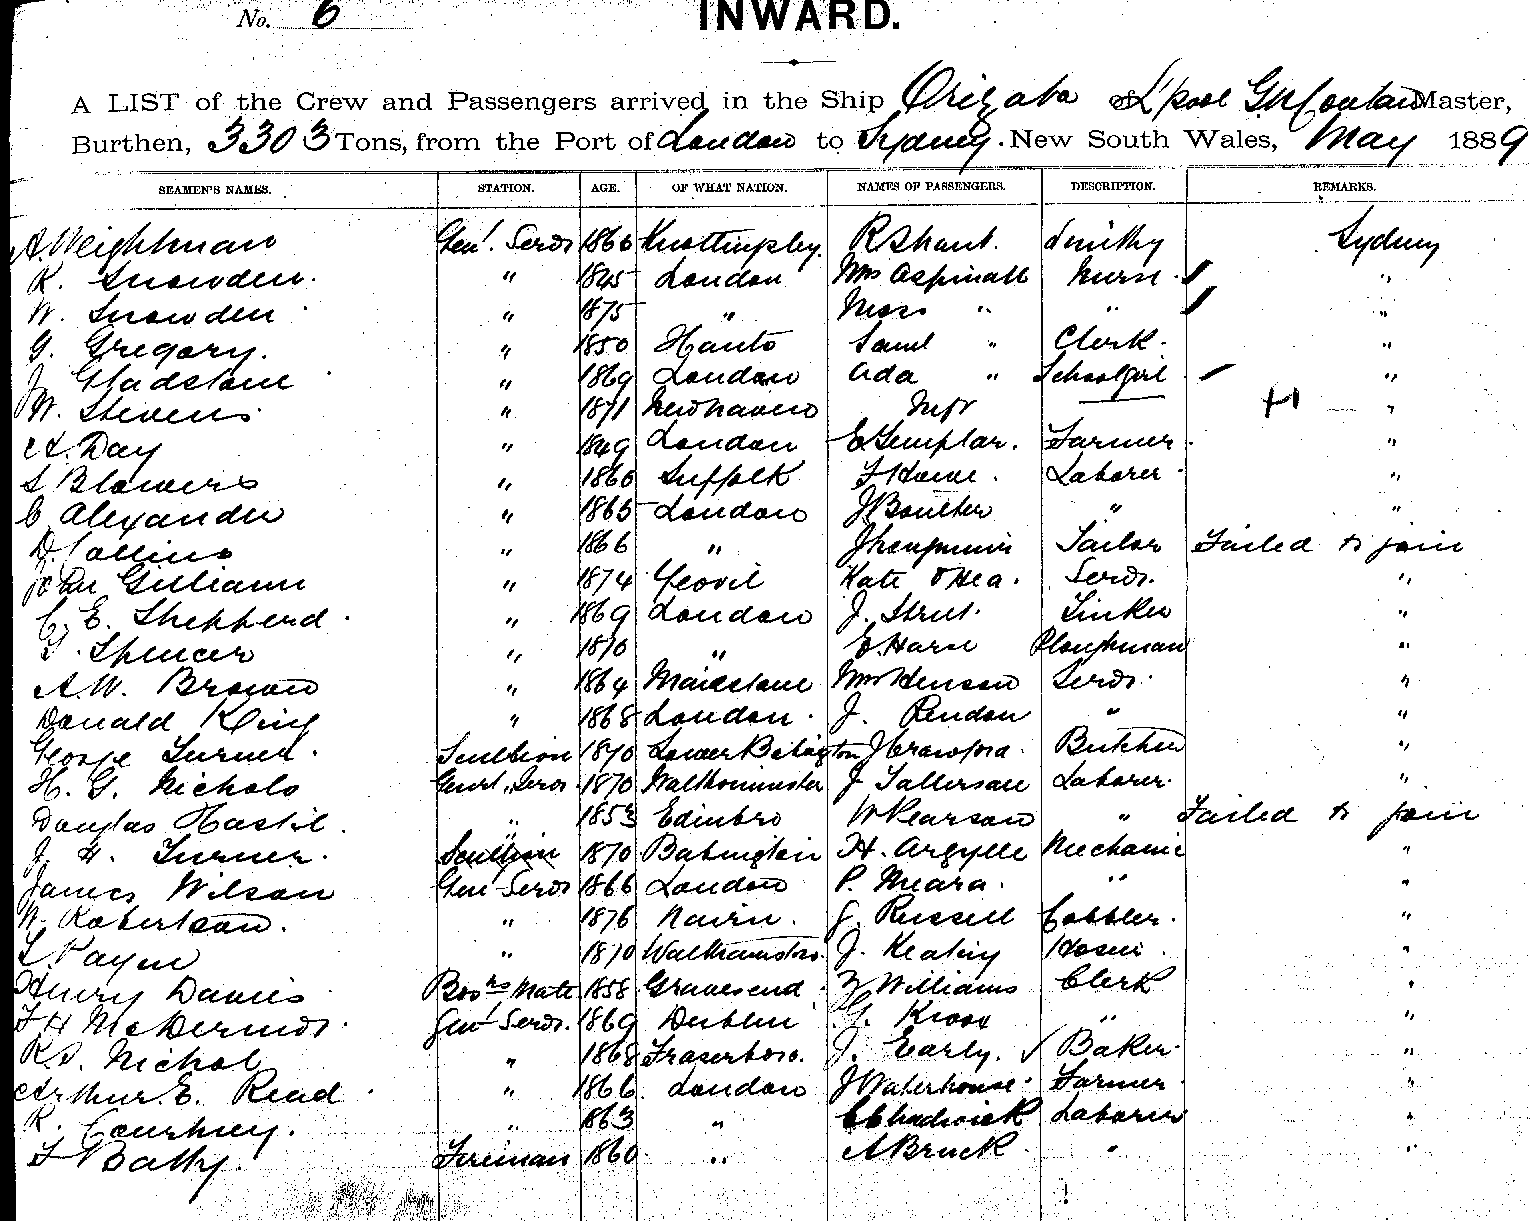 No. 6
INWARD.
A LIST of the Crew and Passengers arrived in the Ship Orizaba of L'pool Master,
Burthen, 3303 Tons, from the Port of London to Sydney. New South Wales, May 1889
SEAMEN'S NAMES. STATION. AGE. OF WHAT NATION. NAMES OF PASSENGERS. DESCRIPTION. REMARKS.
A Weighman Genl. Servt 1866 Knottingley. R Shant. Smithy Sydney
R. Snowden. " 1845 London Mrs Aspinall Nurse "
W. Snowden " 1875 " " " "
G. Gregory. " 1850 Hants Saml " Clerk. "
J Gladstone " 1869 London Ada " Schoolgirl "
W. Stevens. " 1871 Newhaven Inft "
A. Day " 1849 London E Templar. Farmer. "
S Blowers " 1866 Suffolk F Howe. Laborer "
C Alexander " 1865 London J Boulter " "
D. Collins " 1866 " Tailor Failed to join
John Gilliann " 1874 Yeovil Kate O'Hea. Servt. "
C. E. Shepherd. " 1869 London J. Strut. Tinker "
G. Spencer " 1870 " E. Harse Ploughman "
A.W. Brown " 1864 Maidstone Mrs Henson Servt. "
Donald King " 1868 London. J. Rendon " "
George Turner. Scullion 1870 Lower J Crawford. Butcher "
H. G. Nichols Genl. Servt 1870 J Tallersall Laborer. "
Douglas Hastil. " 1853 Edinbro W Pearson " Failed to join
J. H. Turner. Scullion 1870 Babington H. Argylle Mechanic "
James Wilson Gen Servt 1866 London P. Meara. " "
W. Robertson. " 1876 Nairn. J. Russell Cobbler. "
L. Payne " 1870 Walthamstow. J. Keating "
Henry Davies Bosns Mate 1858 Gravesend. Williams Clerk "
F H McDermot. Genl Servt. 1869 Dublin G. Knox " "
R.D. Nichol " 1868 Fraserboro. J. Early. Baker. "
Arthur. E. Read. " 1866 London J Waterhouse. Farmer. "
R. Courtney. " 1863 " C Chadwick Laborer "
F Batty. Fireman 1860 " A Bruck " "